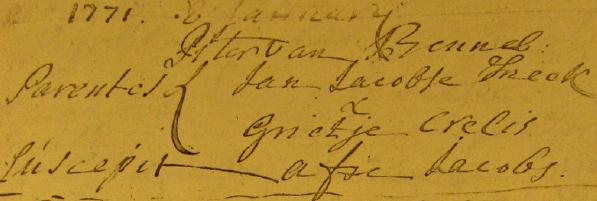 1771. 8 January
Pieter van Bennel.
Parentes Jan Jacobse Kneek
Grietje Crelis
Suscepit Afie Jacobs.